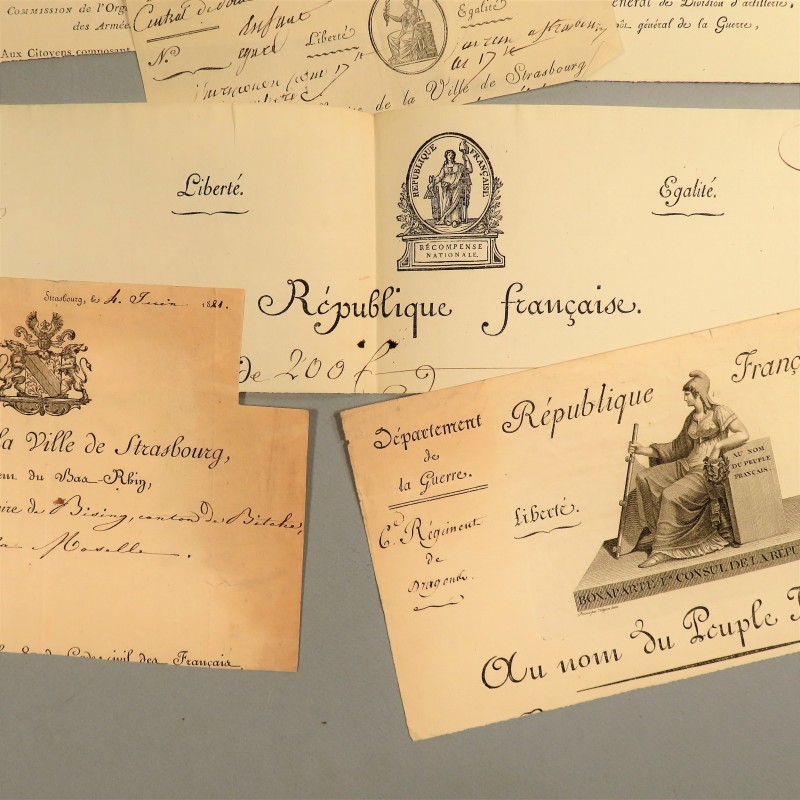 Commission de l'Org
des Armée
Aux Citoyens composant
Central de
Enfant
N°.
Liberté
Egalité
de la Ville de Strasbourg
néral de Division d'artillerie,
général de la Guerre,
Liberté.
RÉPUBLIQUE FRANÇAISE.
RÉCOMPENSE
NATIONALE.
Egalité.
République française.
de 200 f
Strasbourg, le 4 Juin 1821.
la Ville de Strasbourg,
du Bas-Rhin,
ire de Bising, canton de Bitche,
la Moselle.
civil des Français
Département
de
la Guerre.
6.e Régiment
de
Dragons.
République Franç
Liberté.
AU NOM
DU PEUPLE
FRANÇAIS.
BONAPARTE 1.er CONSUL DE LA RÉPU
Au nom du Peuple F